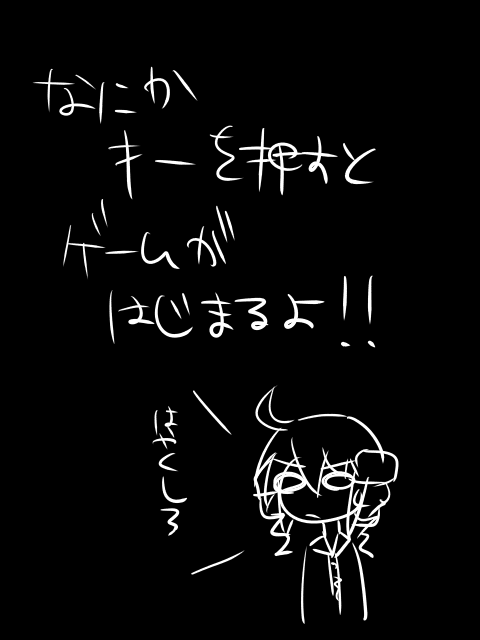 なにか
キーを押すと
ゲームが
はじまるよ!!
はやくしろ